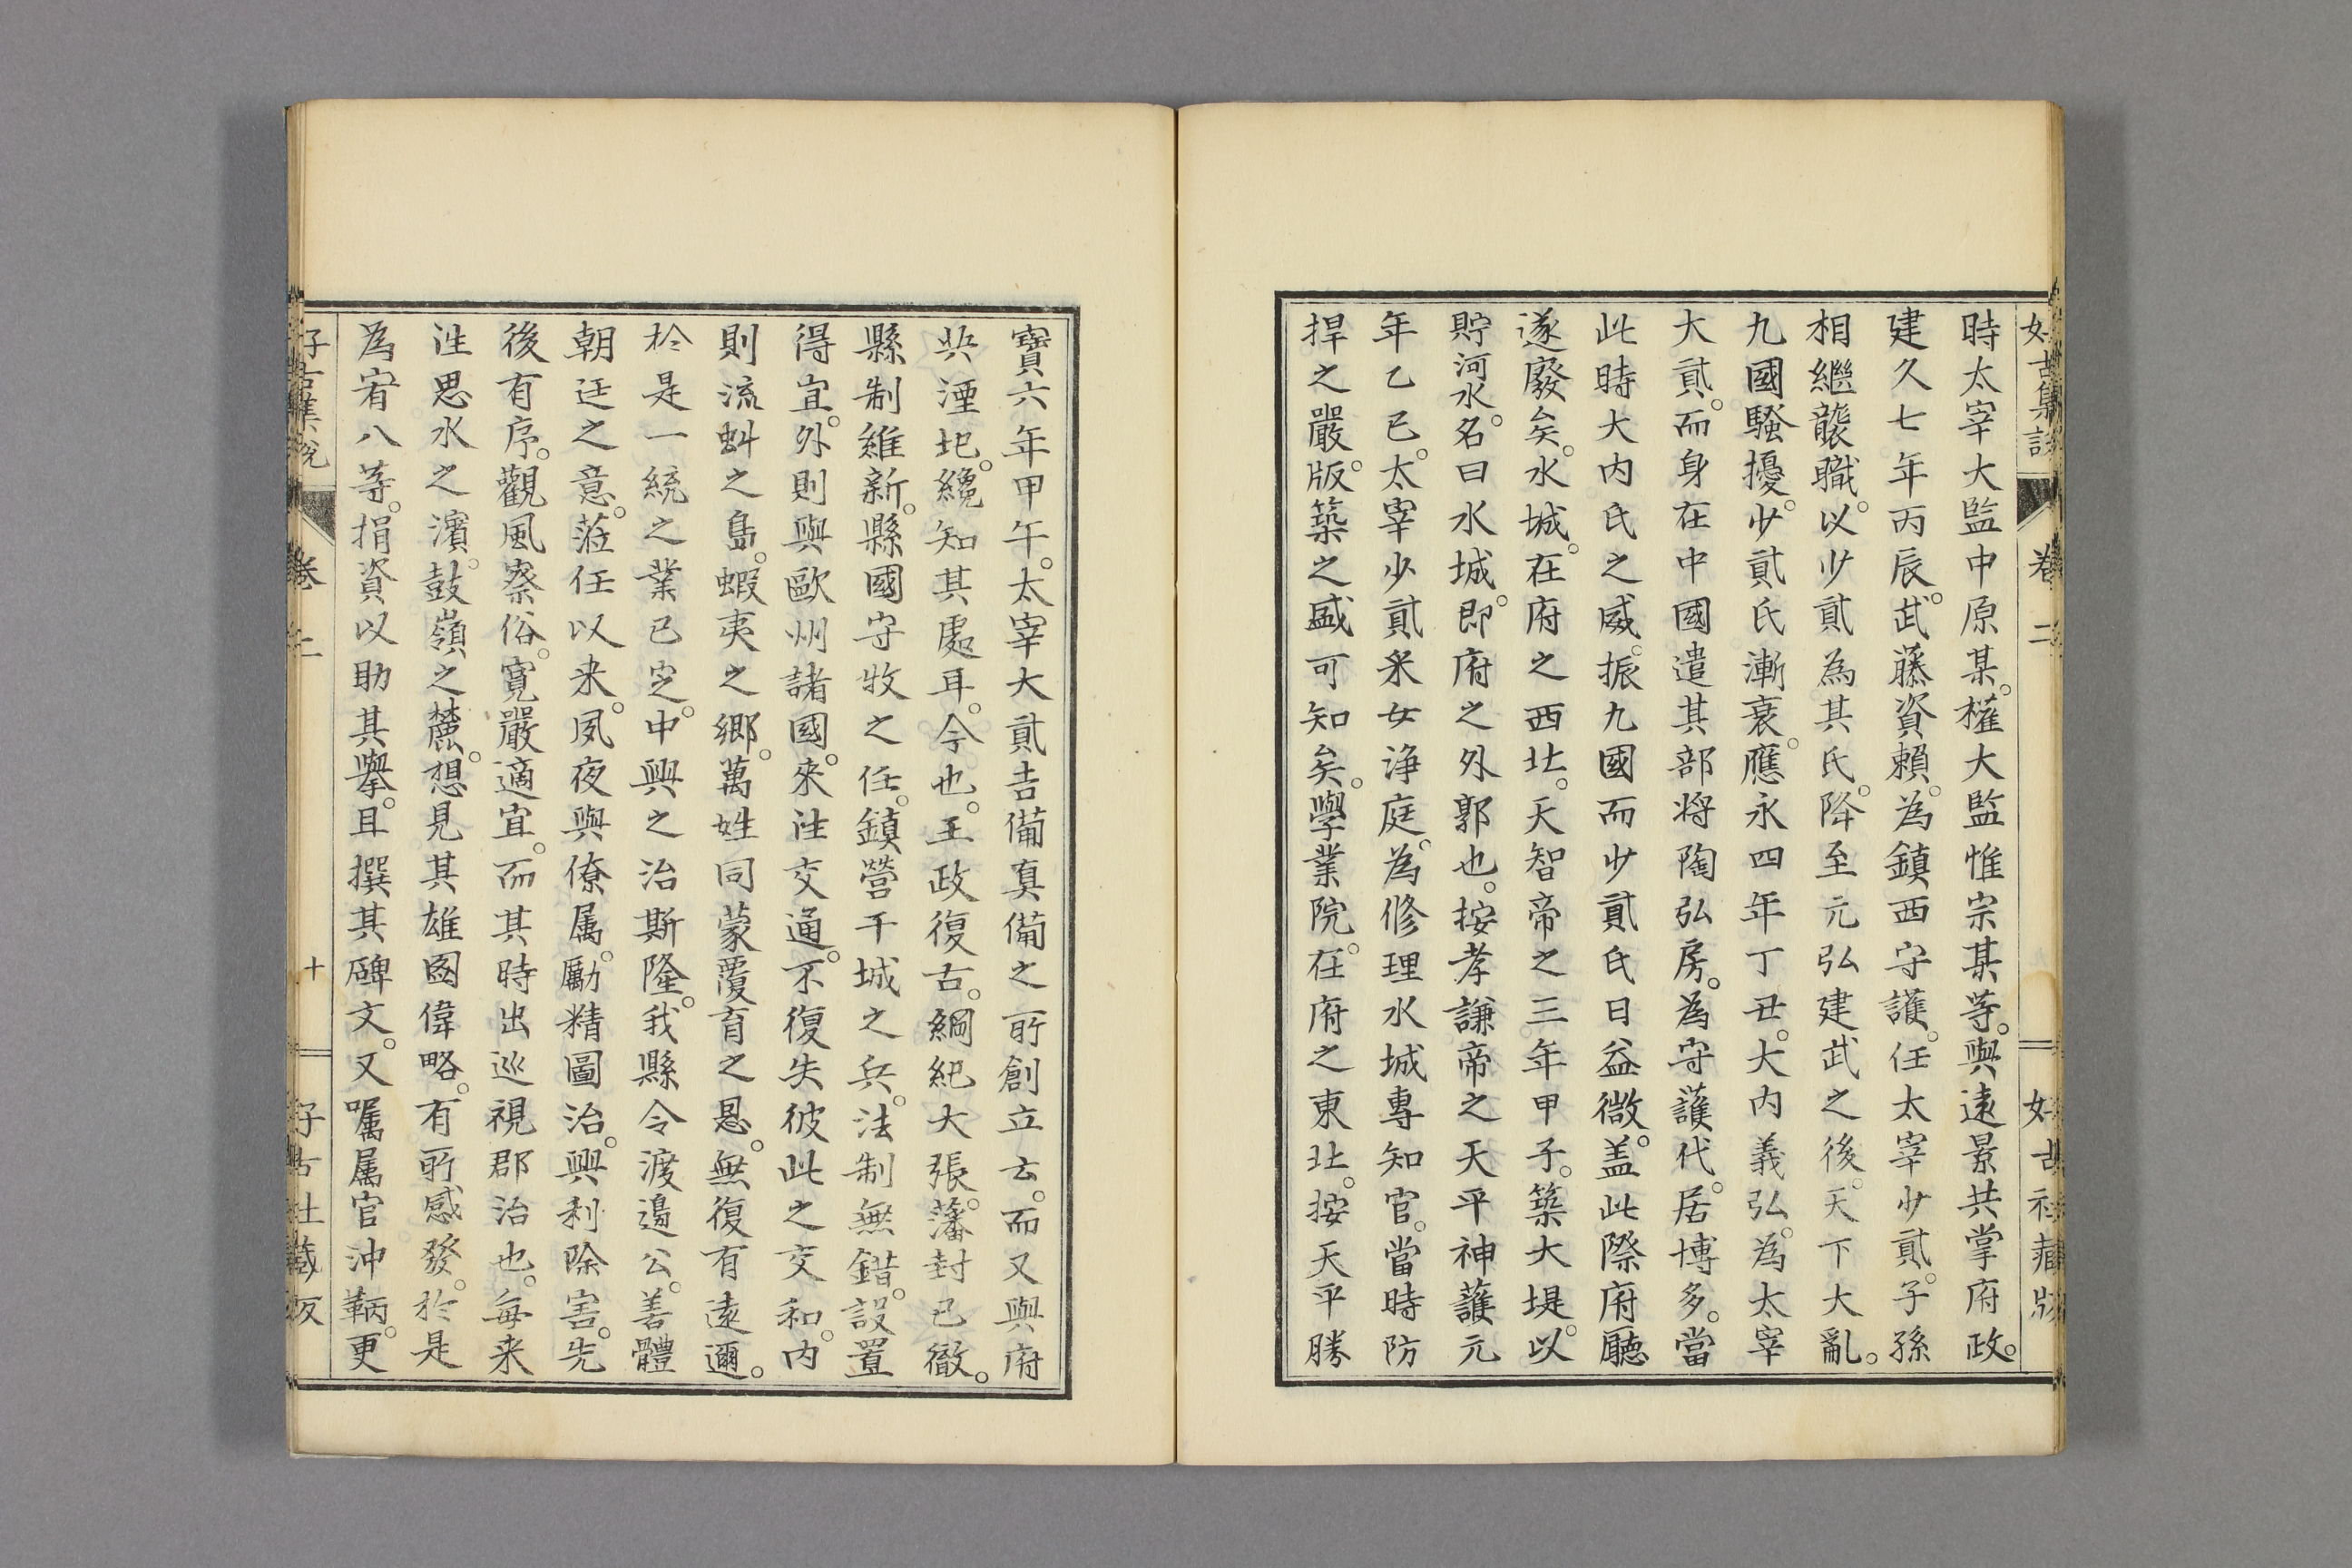 好古集説 卷二 好古社藏版
時太宰大監中原某。權大監惟宗某等。與遠景共掌府政。
建久七年丙辰。武藤資賴。為鎮西守護。任太宰少貳。子孫
相繼襲職。以少貳為其氏。降至元弘建武之後。天下大亂。
九國騷擾。少貳氏漸衰。應永四年丁丑。大內義弘。為太宰
大貳。而身在中國遣其部將陶弘房。為守護代。居博多。當
此時大内氏之威。振九國而少貳氏日益微。盖此際府廳
遂廢矣。水城。在府之西北。天智帝之三年甲子。築大堤。以
貯河水。名曰水城。即府之外郭也。按孝謙帝之天平神護元
年乙巳。太宰少貳采女淨庭。為修理水城專知官。當時防
捍之嚴。版築之盛可知矣。學業院。在府之東北。按天平勝
寶六年甲午。太宰大貳吉備真備之所創立云。而又與府
共湮圯。纔知其處耳。今也。王政復古。綱紀大張。藩封已徹。
縣制維新。縣國守牧之任。鎮營干城之兵。法制無錯。設置
得宜。外則與歐州諸國。來往交通。不復失彼此之交和。内
則流虯之島。蝦夷之鄉。萬姓同蒙覆育之恩。無復有遠邇。
於是一統之業已定。中興之治斯隆。我縣令渡邉公。善體
朝廷之意。蒞任以来。夙夜與僚属。勵精圖治。興利除害。先
後有序。觀風察俗。寬嚴適宜。而其時出巡視郡治也。毎来
往思水之濱。鼓嶺之麓。想見其雄圖偉略。有所感發。於是
為宥八等。捐資以助其擧。且撰其碑文。又嘱属官沖鞆。更
好古集説 卷二 十 好古社藏版